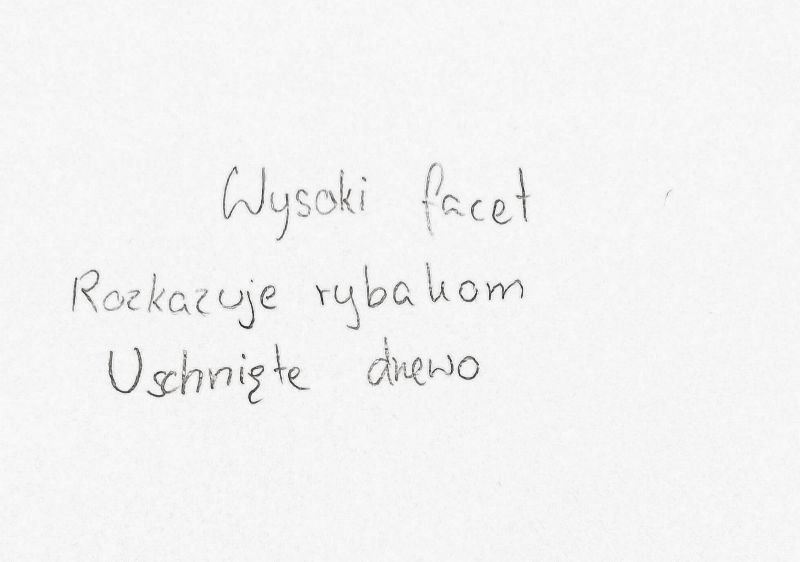 Wysoki facet
Rozkazuje rybakom
Uschnięte drzewo